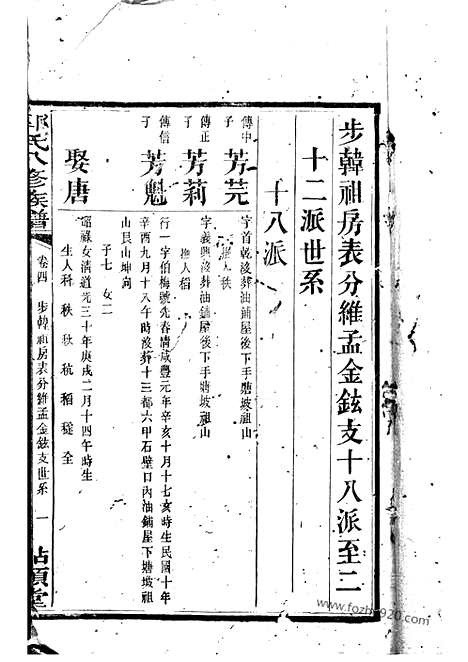 步韓祖房表分維孟金鉉支十八派至二
十二派世系
十八派
傳中子
芳芫
字首乾沒葬油鋪屋後下手塘坡祖山
撫人秩
傳正子
芳莉
字義興沒葬油鋪屋後下手塘坡祖山
撫人稻
傳信子
芳魁
行一字伯梅號先春清咸豐元年辛亥十月十七亥時生民國十年
辛酉九月十八午時沒葬十三都六甲石壁口內油鋪屋下塘坡祖
山艮山坤向
子七 女二
娶唐
詔祿女清道光三十年庚戌二月十四午時生
生人科 秋 秋 秔 稻 穟 全
氏八修族譜
卷四 步韓祖房表分維孟金鉉支世系 一
www.fozhu920.com